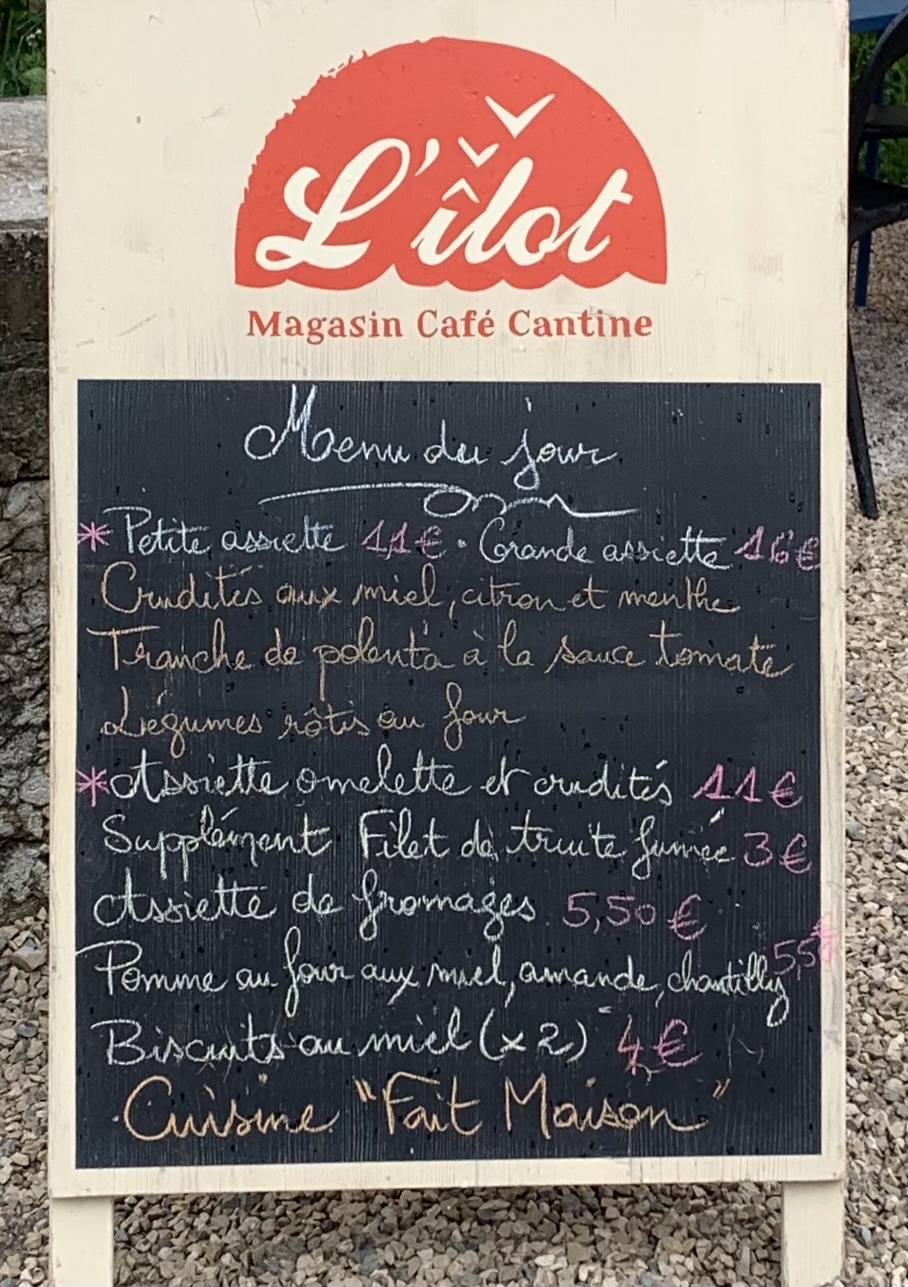 L'îlot
Magasin Café Cantine
Menu du jour
* Petite assiette 11€ . Grande assiette 16€
Crudités aux miel, citron et menthe
Tranche de polenta à la sauce tomate
Légumes rôtis au four
* Assiette omelette et crudités 11€
Supplément Filet de truite fumée 3€
Assiette de fromages 5,50€
Pomme au four aux miel, amande, chantilly
Biscuits au miel (x2) 4€
Cuisine "Fait Maison"